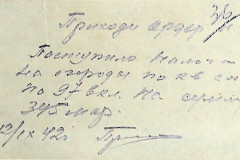 Приходн ордер
Поступило налога
на огороды по кв см
по 97 вкл. на сумму
345 мар.
12/IX 42г